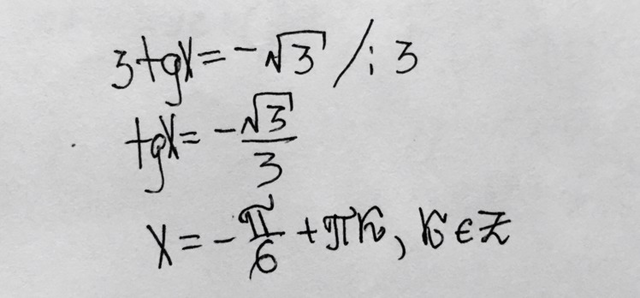 3tgx = -√3 /: 3
tgx = -√3/3
x = -π/6 + πk, k ∈ Z